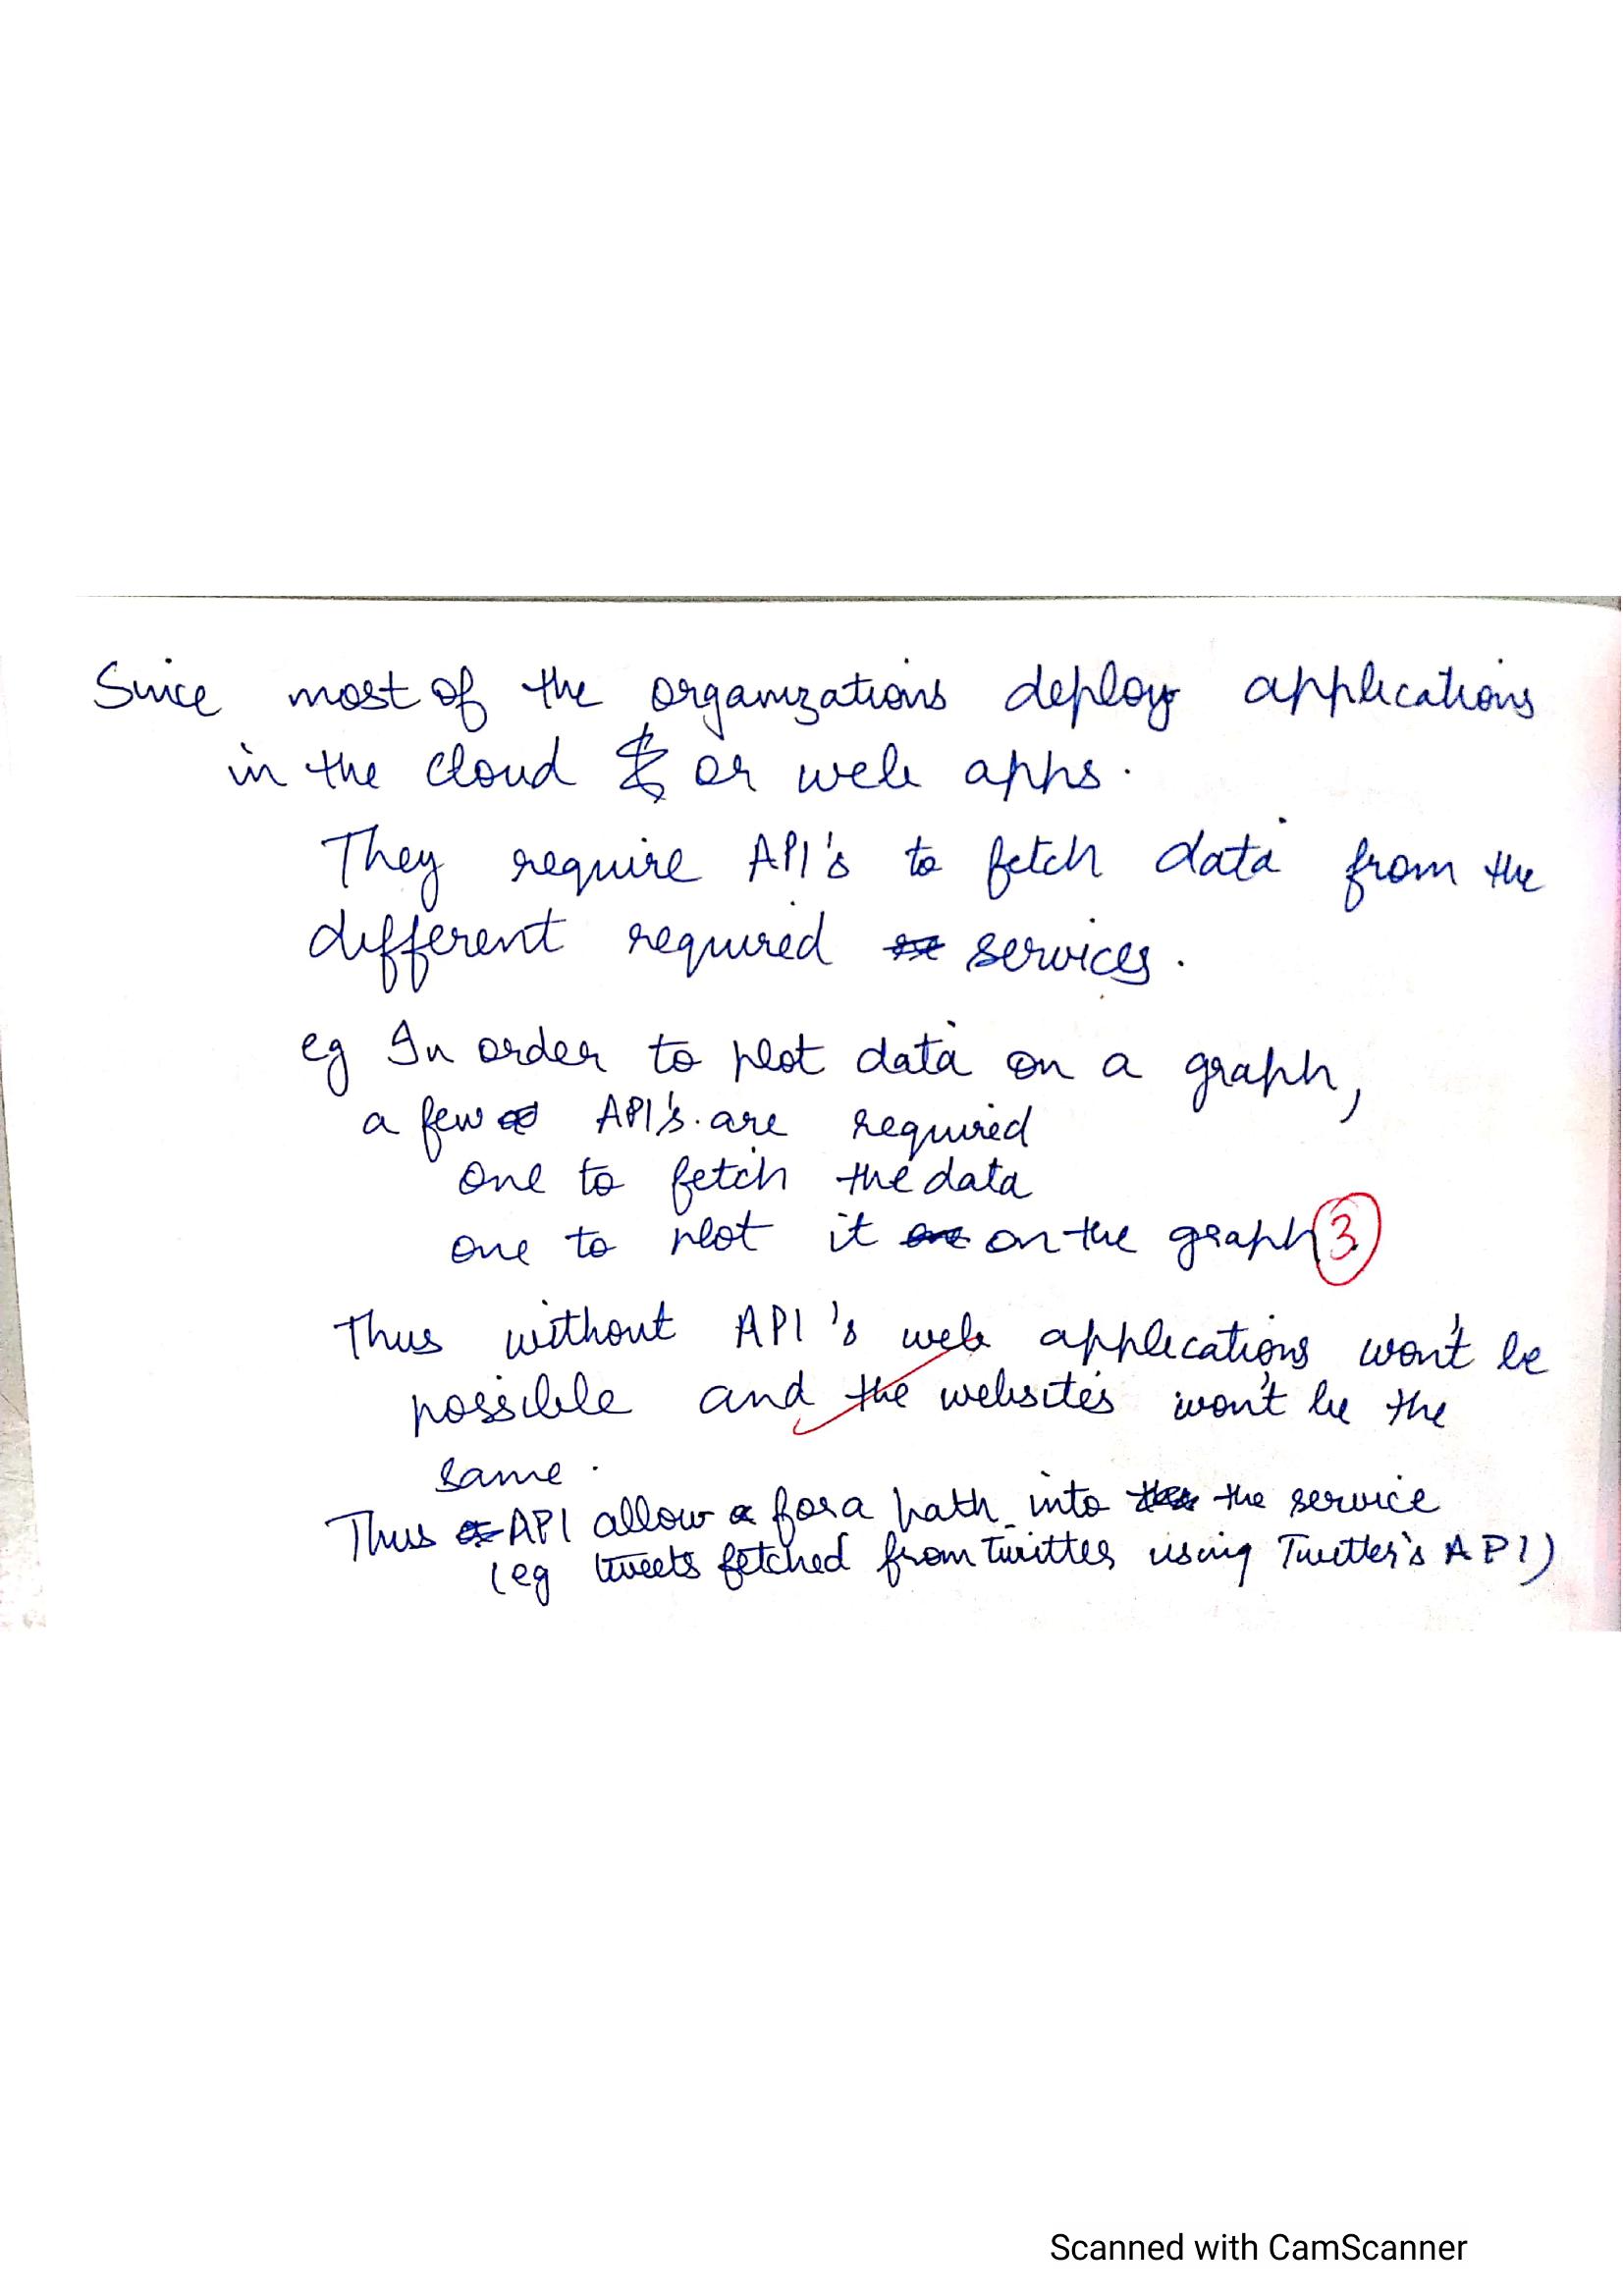 Since most of the organizations deploy applications
in the cloud or web apps.
They require API's to fetch data from the
different required services.
eg In order to plot data on a graph,
a few API's are required
one to fetch the data
one to plot it on the graph 3
Thus without API's web applications won't be
possible and the websites won't be the
same.
Thus API allow for a path into the service
(eg tweets fetched from twitter using Twitter's API)
Scanned with CamScanner